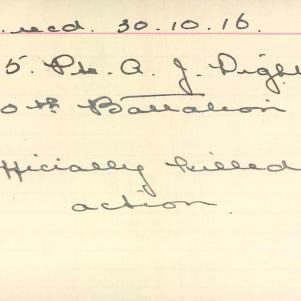 .recd. 30.10.16.
5. Pte. A. J. Digh
0th Battalion
fficially killed
action.